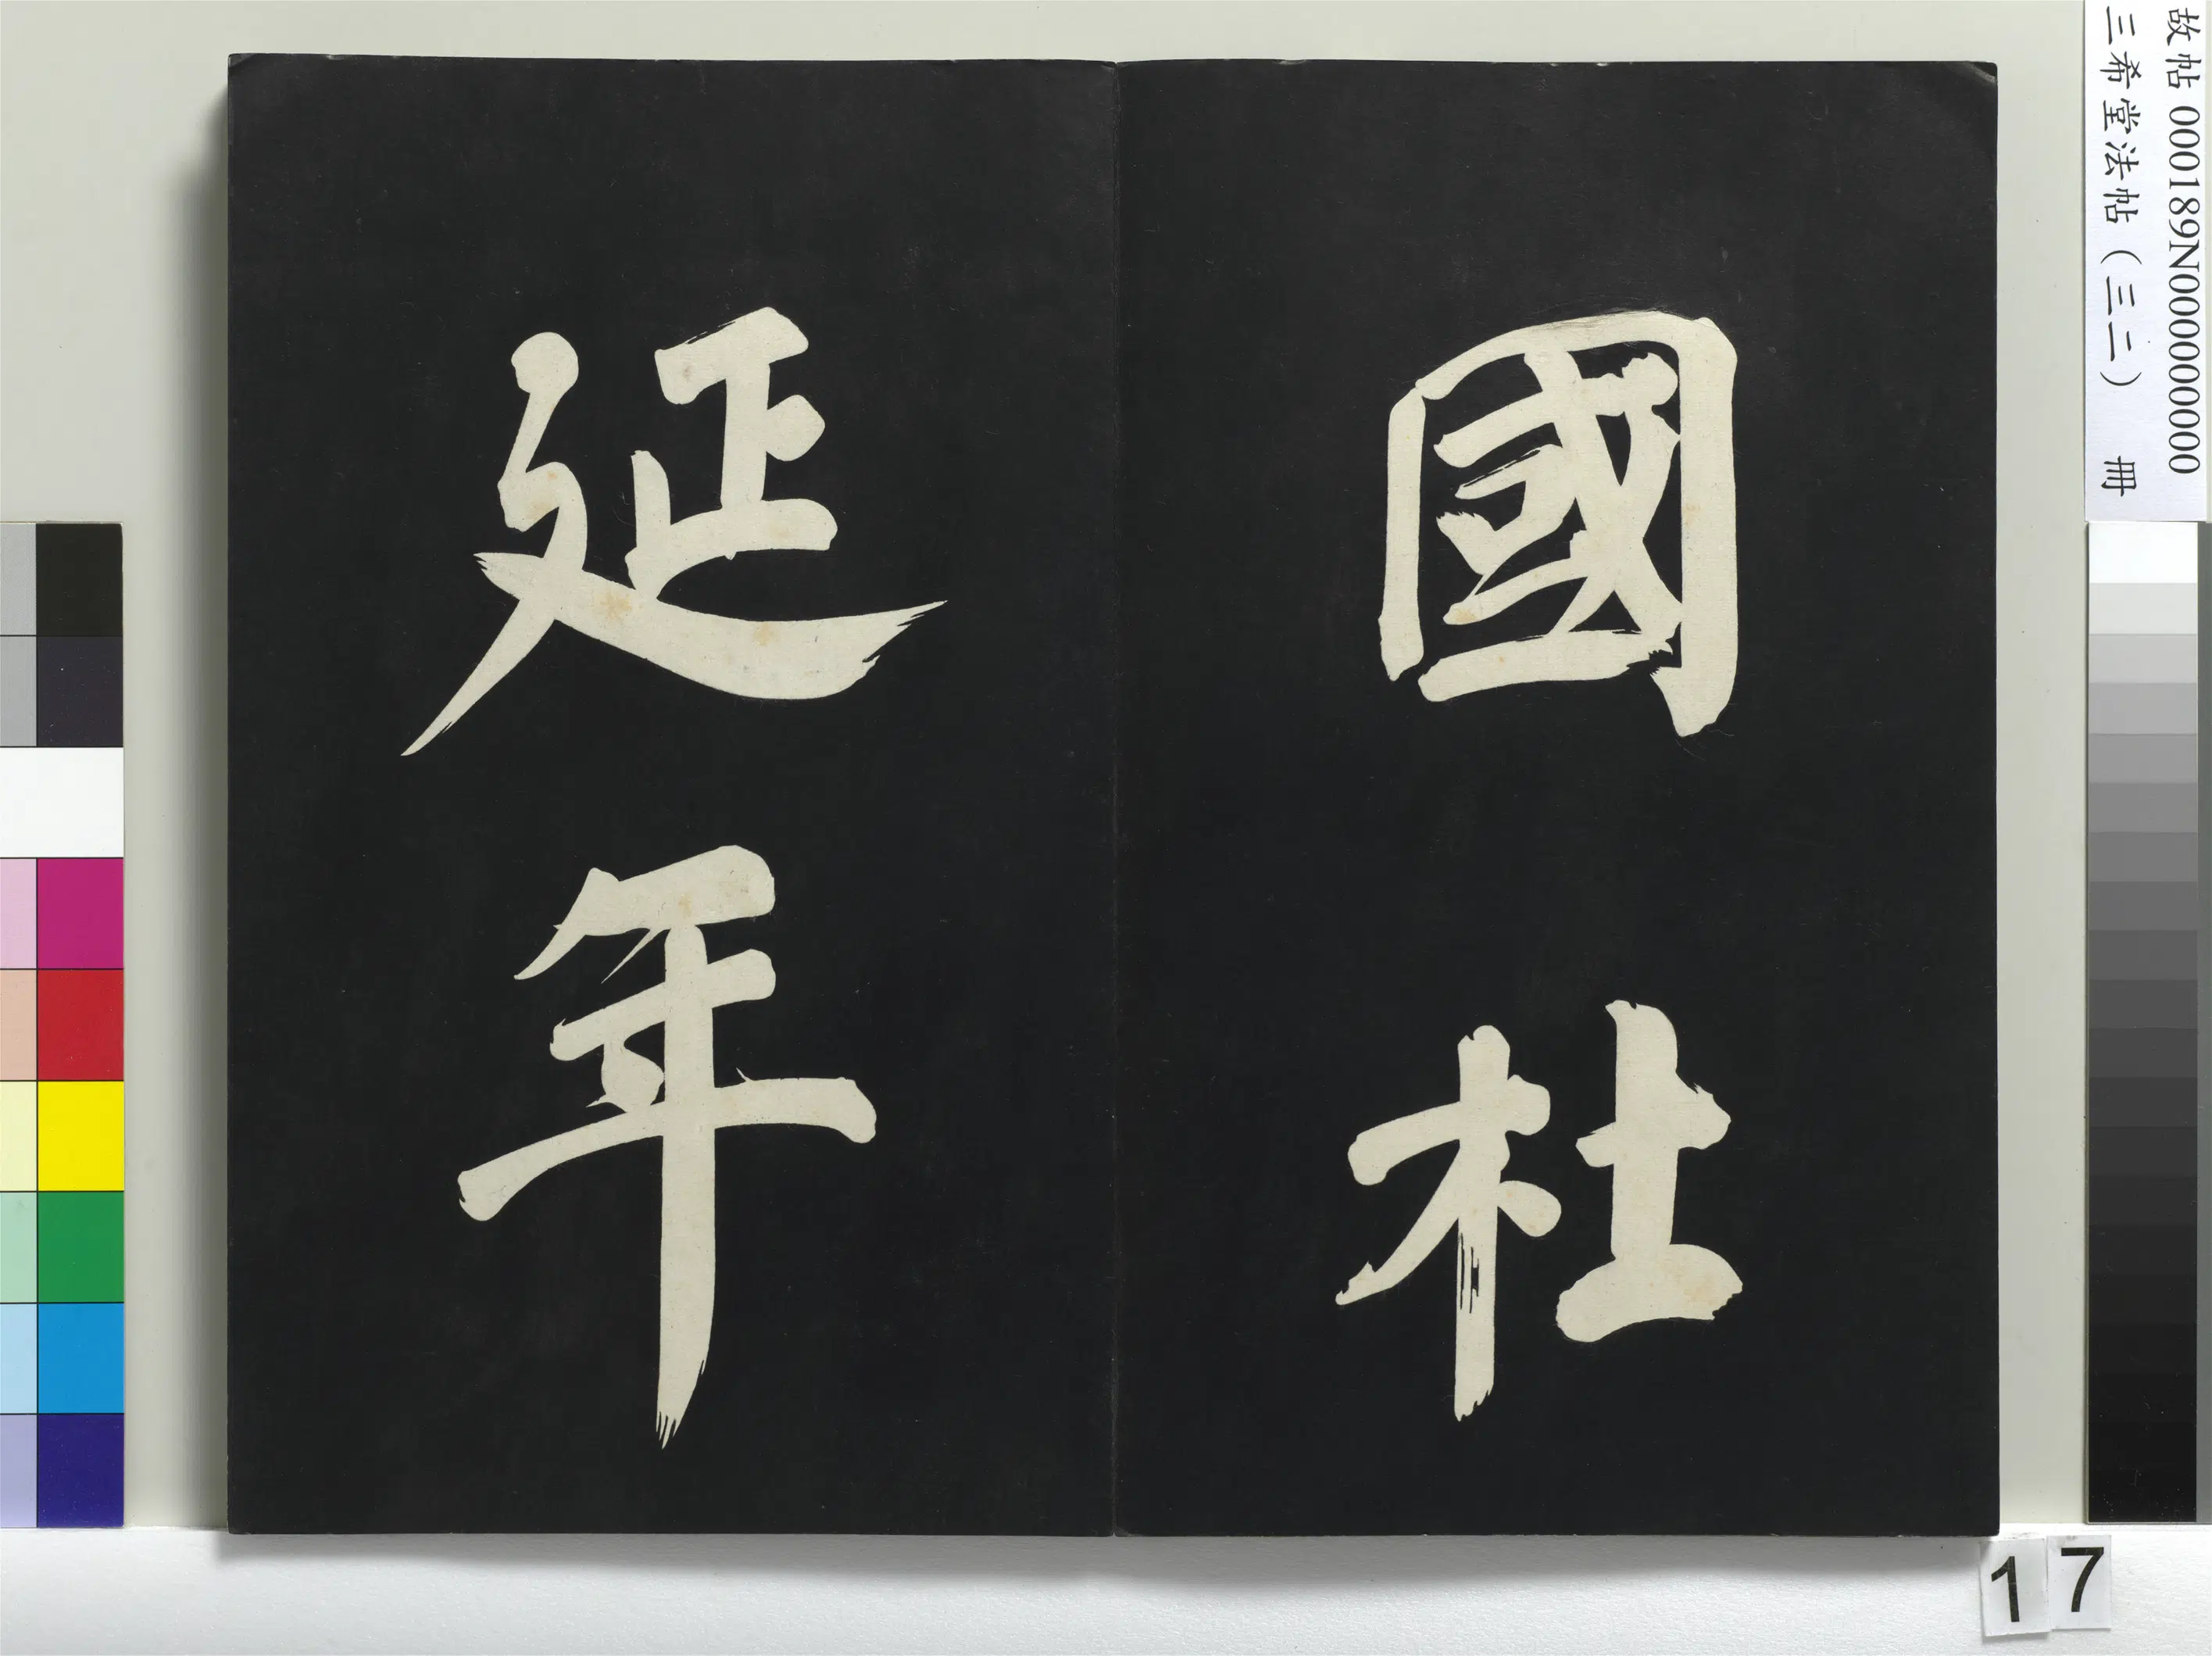 國杜
延年
故帖 000189N000000000
三希堂法帖（三二） 冊
17